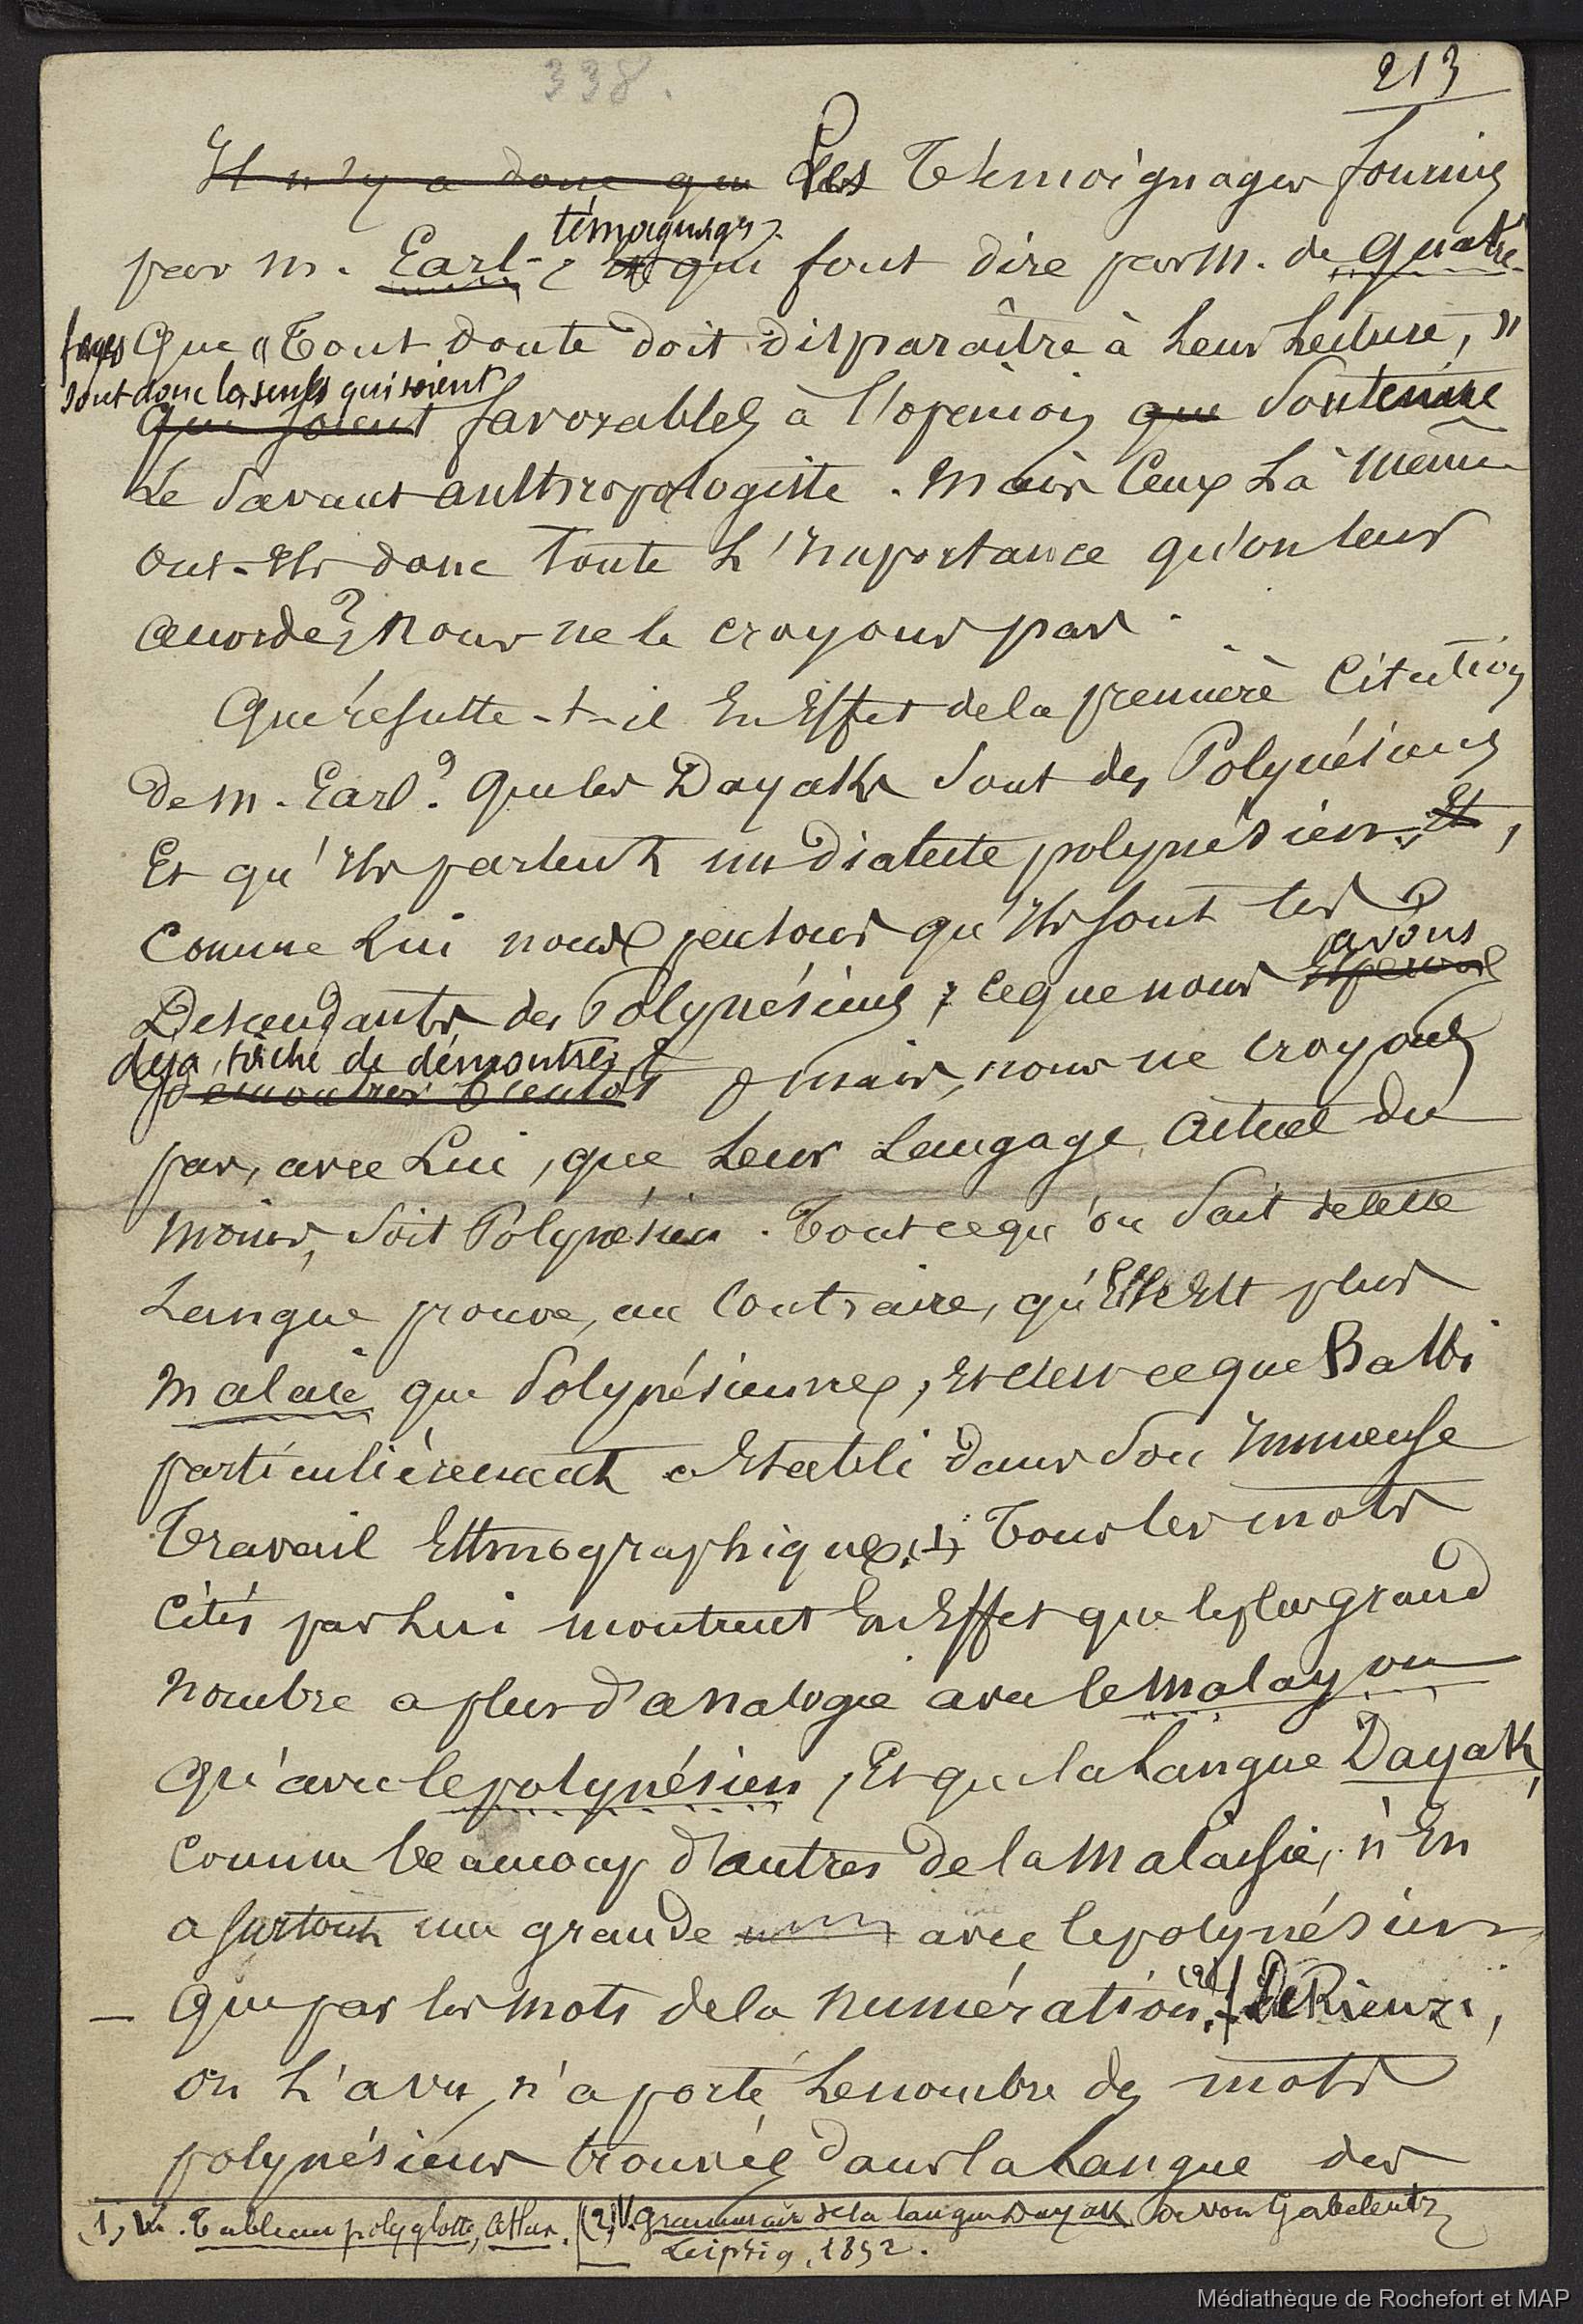 338.
213
Il n'y a donc que Les témoignages fournis
par M. Earl, témoignages qui font dire par M. de Quatre-
fages que "Tout doute doit disparaître à leur lecture,"
sont donc les seuls qui soient
qui soient favorables à l'opinion que soutenue
Le Savant anthropologiste. Mais ceux là même
ont-ils donc toute l'importance qu'on leur
accorde? Nous ne le croyons pas.
Que résulte-t-il en Effet de la première Citation
de M. Earl? Que les Dayaks sont des Polynésiens
Et qu'ils parlent un dialecte polynésien. Et,
Comme Lui nous pensons qu'ils sont les
Descendants des Polynésiens, ce que nous avons
déjà tâché de démontrer
démontrer bientôt mais, nous ne croyons
pas, avec Lui, que Leur Langage, actuel du
moins, soit Polynésien. Tout ce qu'on sait de cette
Langue prouve, au Contraire, qu'Elle Est plus
Malaie que Polynésienne, Et c'est ce que Balbi
particulièrement a Etabli dans son Immense
Travail Ethnographique. (1) Tous les mots
Cités par Lui montrent En Effet que le plus grand
nombre a plus d'analogie avec le Malayou
qu'avec le polynésien, Et que la Langue Dayak,
Comme beaucoup d'autres de la Malaisie, n'En
a surtout une grande avec le polynésien
– que par les mots de la numération. (2) / De Rienzi,
on l'a vu, n'a porté Le nombre des mots
polynésiens trouvés dans la Langue des
(1) V. Tableau polyglotte, Atlas. (2) V. Grammaire de la langue Dayak de von Gabelentz
Leipzig, 1852.
Médiathèque de Rochefort et MAP